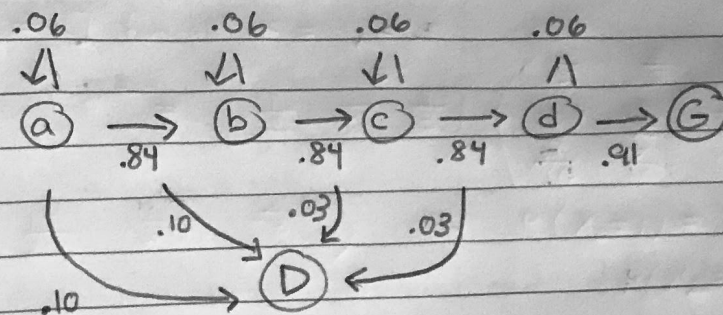 .06 .06 .06 .06
a b c d G
.84 .84 .84 .91
.10 .03 .03
D
.10